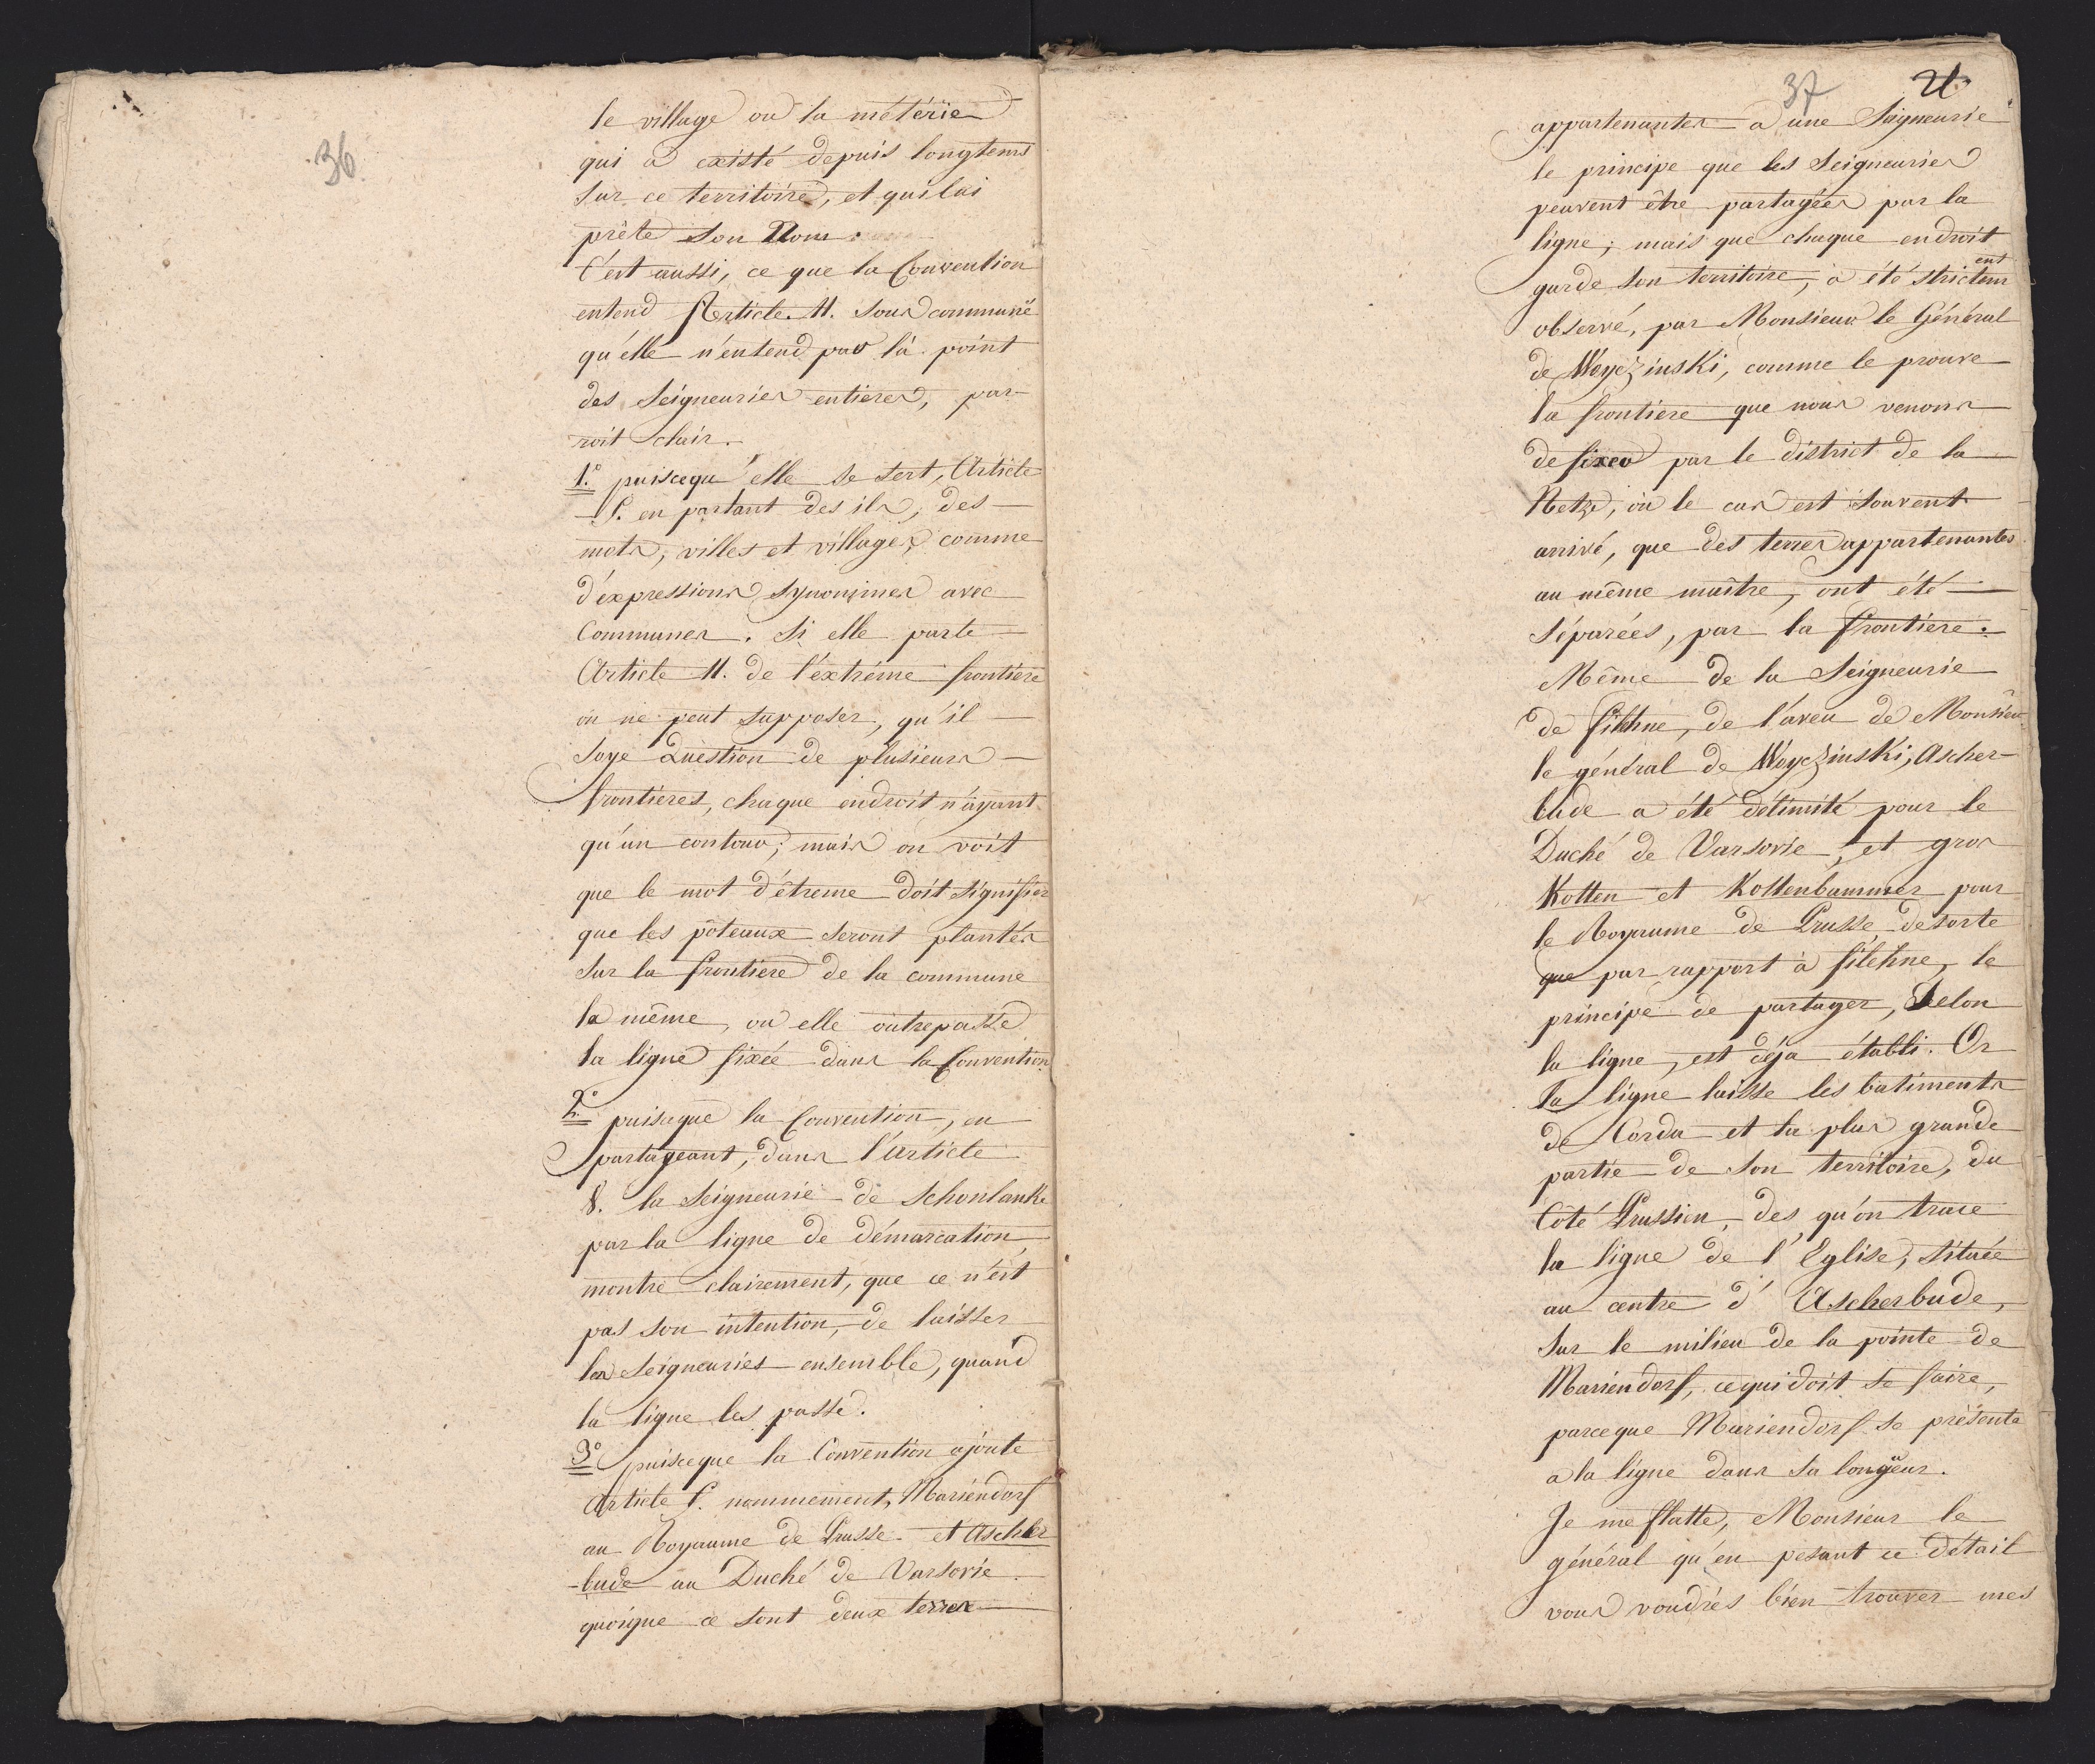 36
le village ou la métérie
qui a existé depuis longtems
sur ce territoire, et qui lui
prète son Nom.
C'est aussi, ce que la Convention
entend Article. 11. sous commune
qu'elle n'entend par là point
des Seigneuries entieres, par-
roit clair.
1.º puisequ'elle se sert, Article
8. en parlant des ils, des
mots, villes et villages, comme
d'éxpressions synonimes avec
Communes. Si elle parle
Article 11. de l'éxtréme frontière
on ne peut supposer, qu'il
soye Question de plusieurs
frontieres, chaque endroit n'ayant
qu'un contour; mais on voit
que le mot d'étreme doit signifier
que les pôteaux seront plantés
sur la frontiere de la commune
la même, ou elle outrepasse
la ligne fixée dans la Convention
2.º puiseque la Convention, en
partageant, dans l'Article
8. la Seigneurie de Schonlanke
par la ligne de démarcation,
montre clairement, que ce n'est
pas son intention, de laisser
les Seigneuries ensemble, quand
la ligne les passe.
3º puiseque la Convention ajoute
Article 8. nommement, Mariendorf
au Royaume de Prusse et Ascher
-bude au Duché de Varsovie
quoique ce sont deux terres
37 21.
appartenantes a une Seigneurie
le principe que les Seigneuries
peuvent être partagées par la
ligne; mais que chaque endroit
garde son territoire, a été strictem
ent
observé, par Monsieur le Général
de Woyczinski, comme le prouve
la frontiere que nous venons
de fixer par le district de la
Netze, où le cas est souvent
arrivé, que des terres appartenantes
au même maître, ont été
séparées, par la frontiere.
Même de la Seigneurie
de Filehne, de l'aveu de Monsieur
le général de Woyczinski, Ascher-
bude a été délimité pour le
Duché de Varsovie, et gros
Kotten et Kottenhammer pour
le Royaume de Prusse, desorte
que par rapport à Filehne, le
principe de partager, Selon
la ligne, est déja établi. Or
la ligne laisse les batiments
de Corda et la plus grande
partie de son territoire, du
Côté Prussien, des qu'on trace
la ligne de l'Eglise, située
au centre d'Ascherbude,
sur le milieu de la pointe de
Mariendorf, cequi doit se faire,
parceque Mariendorf se présente
a la ligne dans sa longueur.
Je me flatte, Monsieur le
général qu'en pesant ce détail
vous voudrés bien trouver mes